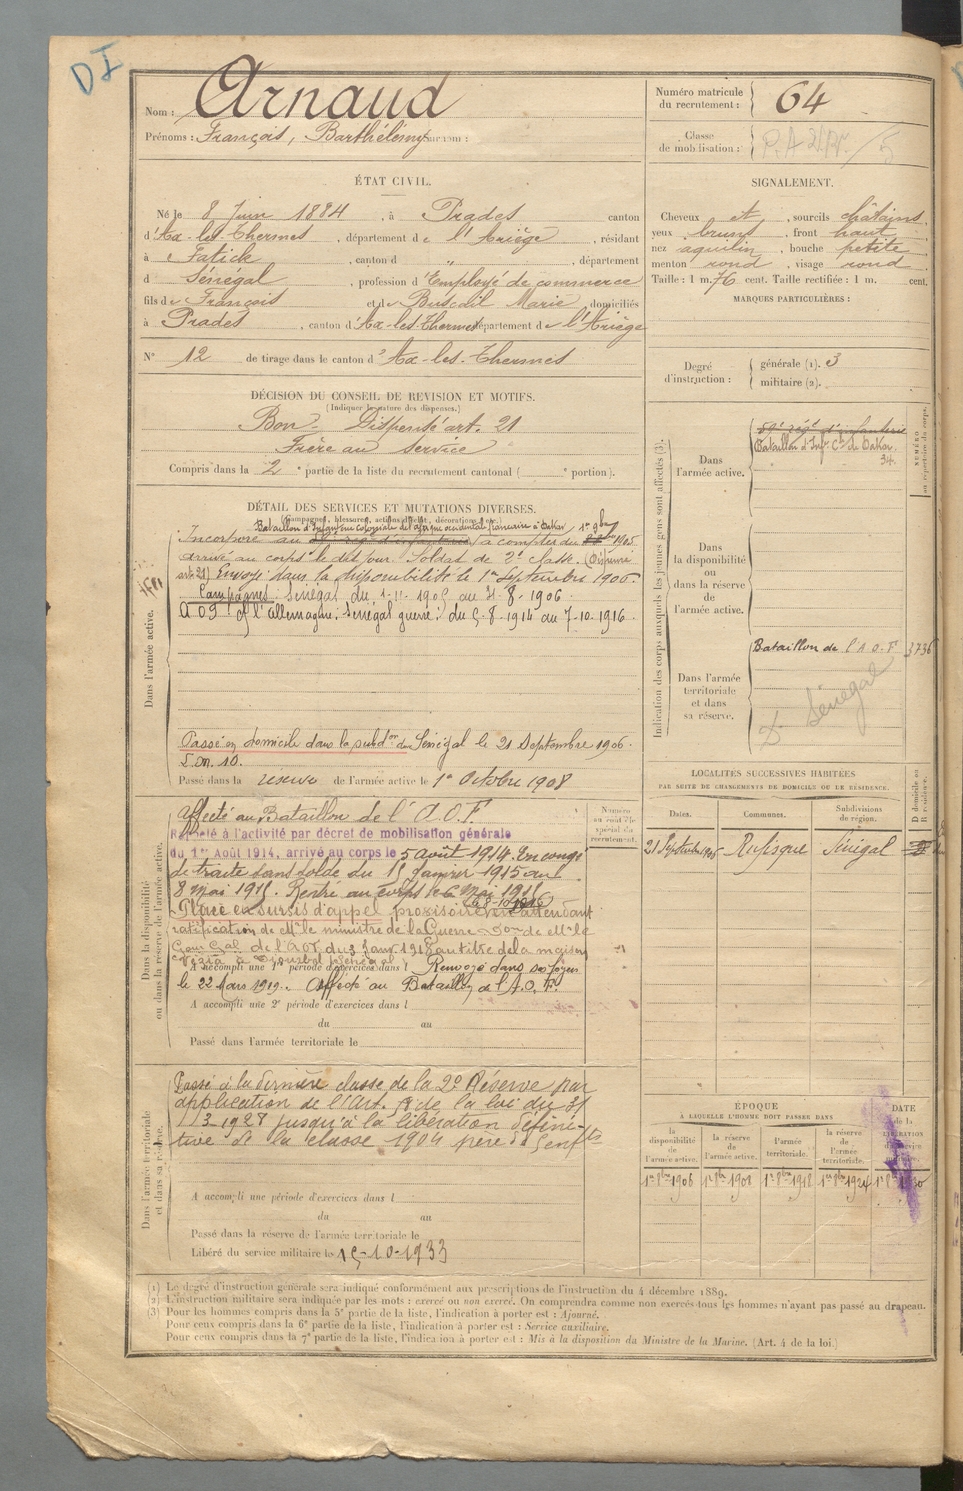 DI
Nom : Arnaud
Prénoms : François, Barthélémy Surnom :
Numéro matricule du recrutement : 64
Classe de mobilisation :
ÉTAT CIVIL.
Né le 8 Juin 1884, à Prades canton
d'Ax-les-Thermes, département de l'Ariège, résidant
à Fatick, canton d „ , département
d Sénégal, profession d'Employé de commerce
fils de François et de Buscail Marie domiciliés
à Prades, canton d'Ax-les-Thermes département de l'Ariège
N° 12 de tirage dans le canton d'Ax-les-Thermes
SIGNALEMENT.
Cheveux et, sourcils châtains,
yeux bruns, front haut,
nez aquilin, bouche petite
menton rond, visage rond
Taille : 1 m. 76 cent. Taille rectifiée : 1 m. cent.
MARQUES PARTICULIÈRES :
Degré d'instruction : générale (1). 3
militaire (2).
DÉCISION DU CONSEIL DE REVISION ET MOTIFS.
(Indiquer la nature des dispenses.)
Bon - Dispensé art. 21
Frère au service
Compris dans la 2e partie de la liste du recrutement cantonal ( e portion).
DÉTAIL DES SERVICES ET MUTATIONS DIVERSES.
(Campagnes, blessures, actions d'éclat, décorations, etc.)
Bataillon d'Infanterie coloniale de l'Afrique occidentale française à Dakar 1er 9bre
Incorporé au à compter du 1905
arrivé au corps le dit jour. Soldat de 2e classe. (Dispensé
art. 21) Envoyé dans la disponibilité le 1er Septembre 1906.
Campagnes : Sénégal du 1-11-1905 au 31-8-1906.
A O F Sénégal guerre : du 5-8-1914 au 7-10-1916
Dans l'armée active.
Passé en domicile dans la subdon du Sénégal le 21 Septembre 1906.
Passé dans la réserve de l'armée active le 1er Octobre 1908
Indication des corps auxquels les jeunes gens sont affectés (3).
NUMÉRO au répertoire du corps.
Dans l'armée active.
59e régt d'infanterie
Bataillon d'Inf. Cle de Dakar
34.
Dans la disponibilité ou dans la réserve de l'armée active.
Dans l'armée territoriale et dans sa réserve.
Bataillon de l'A.O.F. 3736
Sénégal
LOCALITÉS SUCCESSIVES HABITÉES
PAR SUITE DE CHANGEMENTS DE DOMICILE OU DE RÉSIDENCE.
Dates. Communes. Subdivisions de région. D domicile ou R résidence.
21 Septembre 1906 Rufisque Sénégal
Dans la disponibilité ou dans la réserve de l'armée active.
Numéro au contrôle spécial du recrutement.
Affecté au Bataillon de l'A.O.F.
Rappelé à l'activité par décret de mobilisation générale
du 1er Août 1914, arrivé au corps le 5 août 1914. En congé
de traite sans solde du 15 janvier 1915 au
8 mai 1915. Rentré au corps le 6 Mai 1915
Placé en sursis d'appel provisoire en attendant
ratification de Mr le ministre de la Guerre
de l'AOF du 3 Janv 1918 au titre de la maison
A accompli une 1re période d'exercices dans l Renvoyé dans ses foyers
le 22 Mars 1919. Affecté au Bataillon de l'A.O.F.
A accompli une 2e période d'exercices dans l
du au
Passé dans l'armée territoriale le
Dans l'armée territoriale et dans sa réserve.
Passé à la dernière classe de la 2e Réserve par
application de l'Art. de la loi du 31
/3-1928 jusqu'à la libération défini-
tive de la classe 1904 père de enfts
A accompli une période d'exercices dans l
du au
Passé dans la réserve de l'armée territoriale le
Libéré du service militaire le 15-10-1933
ÉPOQUE
À LAQUELLE L'HOMME DOIT PASSER DANS
la disponibilité de l'armée active. la réserve de l'armée active. l'armée territoriale. la réserve de l'armée territoriale.
DATE de la LIBÉRATION
1er 8bre 1906 1er 8bre 1908 1er 8bre 1918 1er 8bre 1924 1er 8bre 1930
(1) Le degré d'instruction générale sera indiqué conformément aux prescriptions de l'instruction du 4 décembre 1889.
(2) L'instruction militaire sera indiquée par les mots : exercé ou non exercé. On comprendra comme non exercés tous les hommes n'ayant pas passé au drapeau.
(3) Pour les hommes compris dans la 5e partie de la liste, l'indication à porter est : Ajourné.
Pour ceux compris dans la 6e partie de la liste, l'indication à porter est : Service auxiliaire.
Pour ceux compris dans la 7e partie de la liste, l'indication à porter est : Mis à la disposition du Ministre de la Marine. (Art. 4 de la loi.)